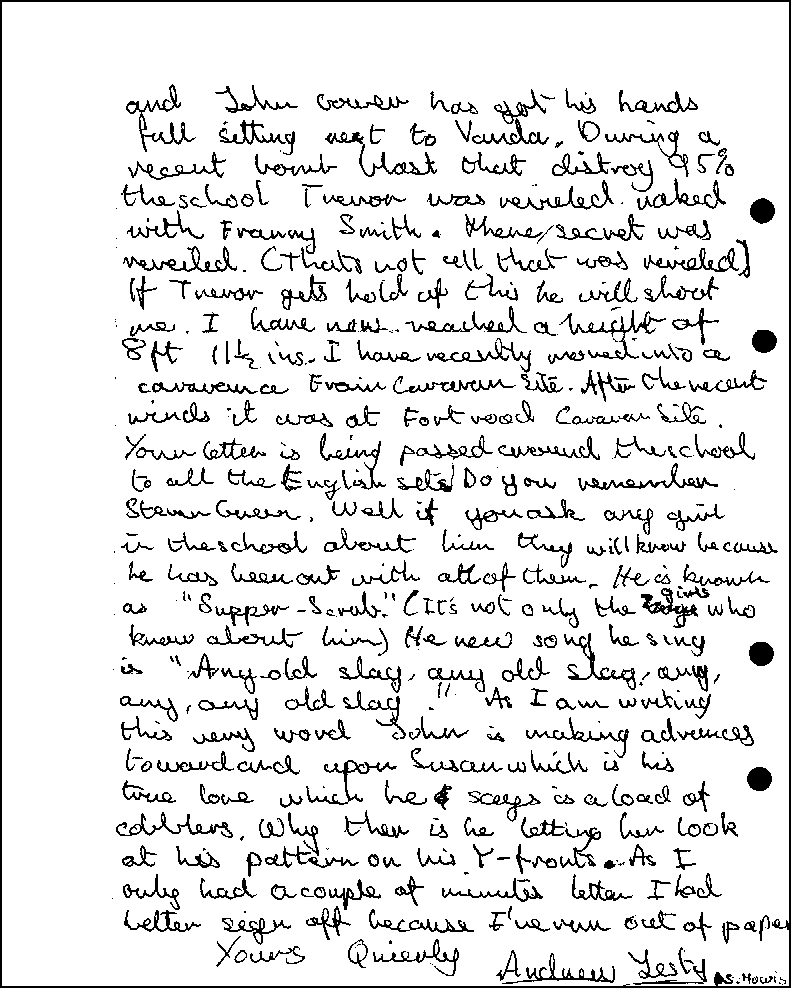 and John cowen has got his hands
full sitting next to Vanda. During a
recent bomb blast that distroy 95%
the school Trevor was revieled naked
with Franny Smith. there secret was
reveiled. (Thats not all that was revieled)
If Trevor gets hold of this he will shoot
me. I have now reached a height of
8ft 11½ ins. I have recently moved into a
caravan a Frain Caravan Site. After the recent
winds it was at Fort road Caravan Site.
Your letter is being passed around the school
to all the English sets. Do you remember
Steven Gueen. Well if you ask any girl
in the school about him they will know because
he has been out with all of them. He is known
as "Supper-Scrub." (It's not only the girls who
know about him) He new song he sing
is "Any old slag, any old slag, any,
any, any old slag." As I am writing
this very word John is making advances
toward and upon Susan which is his
true love which he says is a load of
cobblers. Why then is he letting her look
at his pattern on his Y-fronts. As I
only had a couple of minutes letter I had
better sign off because I've run out of paper
Yours Quierly Andrew Lesty